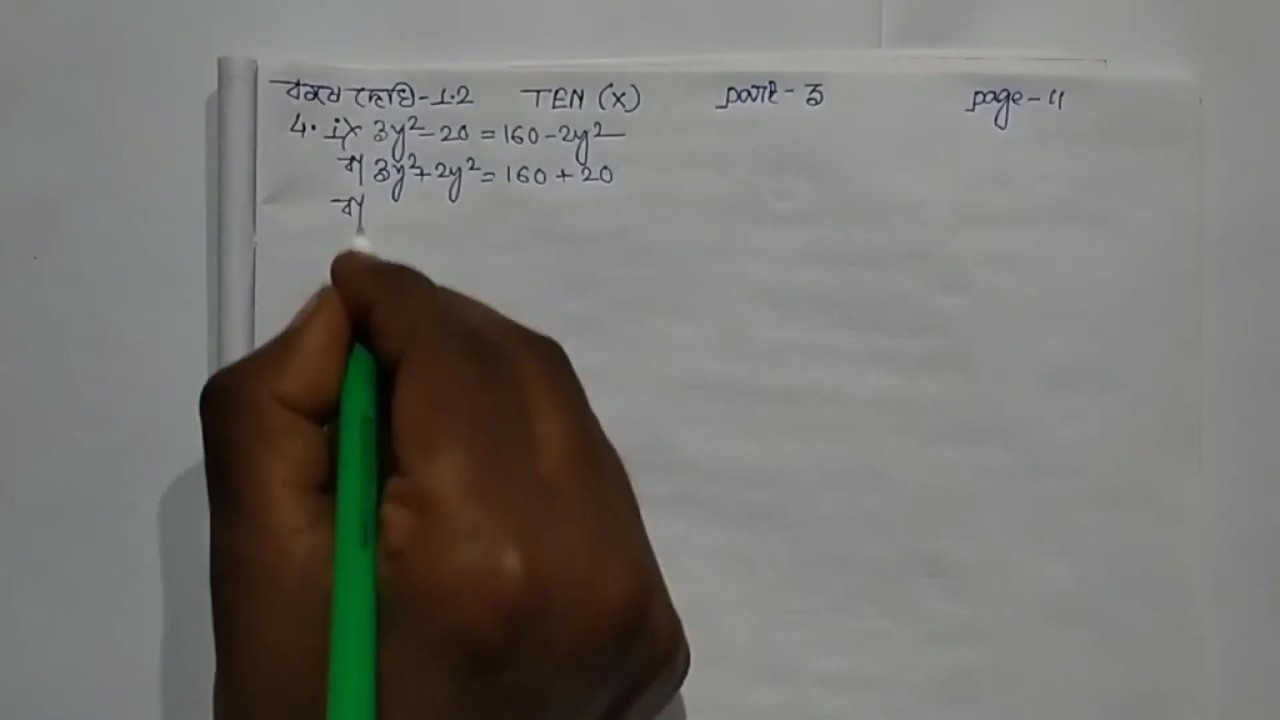 কষে দেখি-1.2 TEN (X) part - 3 page - 11
4. i) 3y²-20 = 160-2y²
বা 3y²+2y² = 160+20
বা